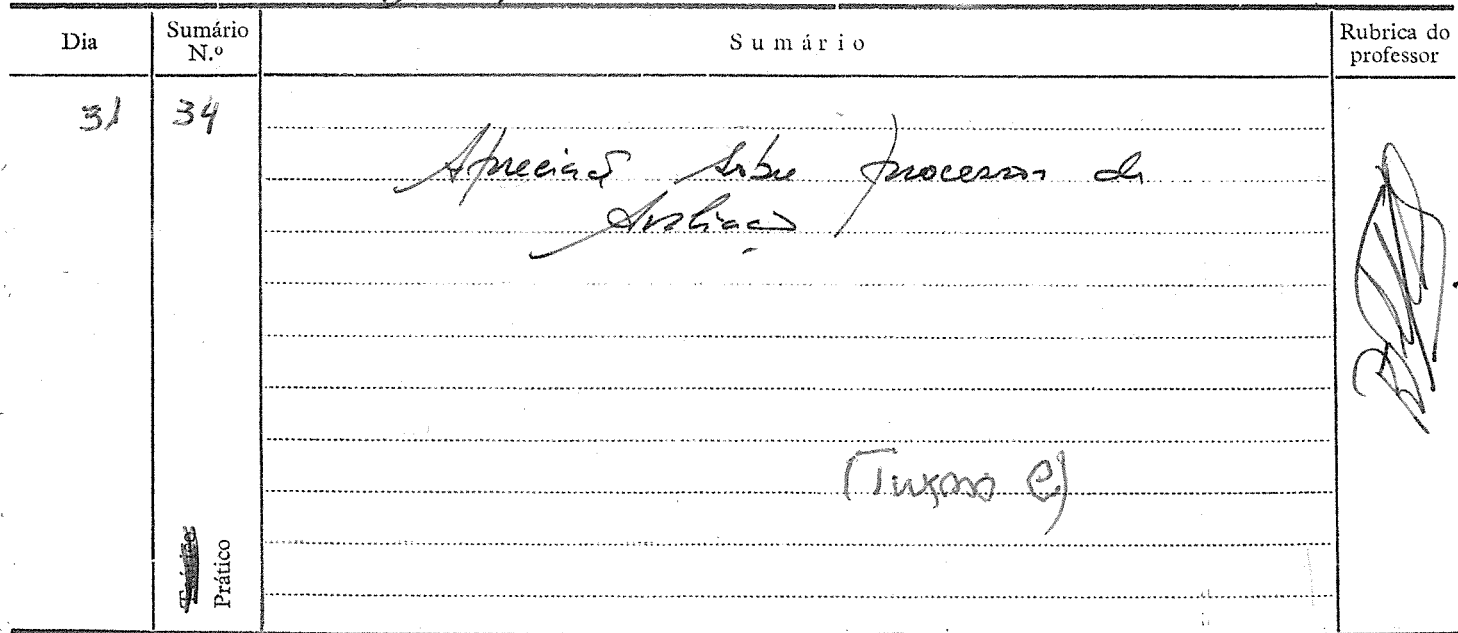 Dia Sumário N.º Sumário Rubrica do professor
31 34
Apreciação sobre processos de
Avaliação
(Turma C)
Teórico
Prático